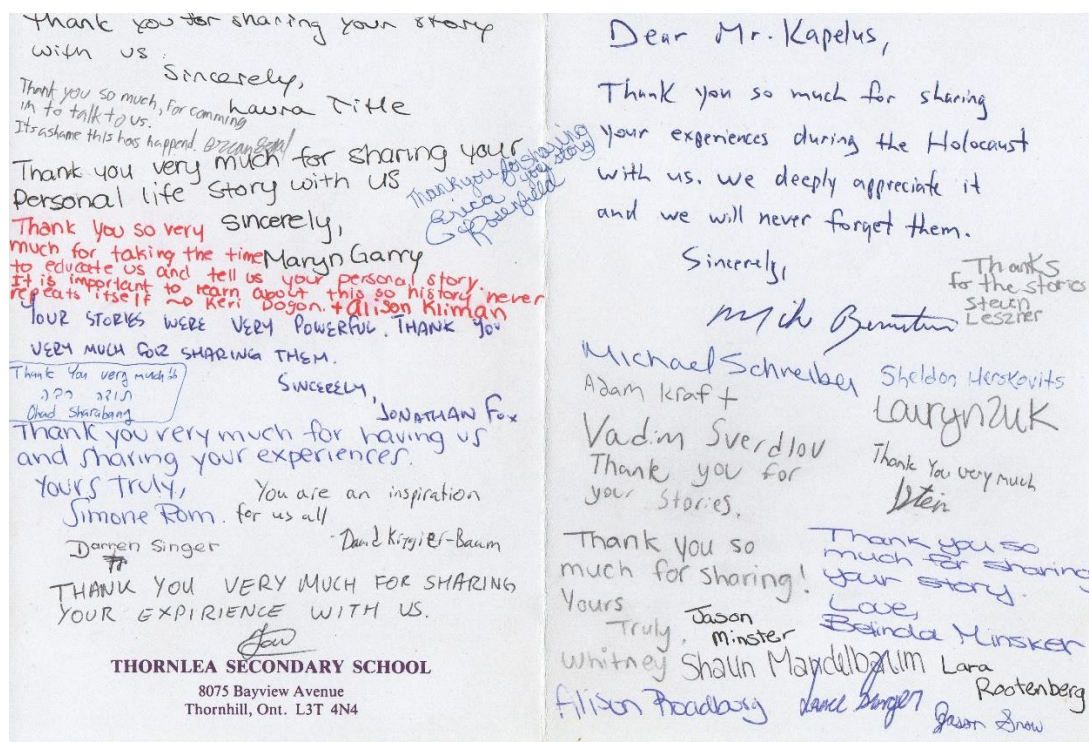 Thank you for sharing your story
with us.
Sincerely,
Laura Title
Thank you so much, For comming
in to talk to us.
Its ashame this has happend.
Thank you very much for sharing your
Personal life story with us
sincerely,
Maryn Garry
Thank you for sharing
your story
Erica
Rosenfield
Thank you so very
much for taking the time
to educate us and tell us your personal story.
It is important to learn about this so history never
repeats itself ~ Keri Dogon. + Alison Kliman
YOUR STORIES WERE VERY POWERFUL. THANK YOU
VERY MUCH FOR SHARING THEM.
SINCERELY,
JONATHAN FOX
Thank You very much!!
תודה רבה
Ohad Sharabang
Thank you very much for having us
and sharing your experiences.
Yours Truly,
Simone Rom.
You are an inspiration
for us all
Darren Singer
THANK YOU VERY MUCH FOR SHARING
YOUR EXPIRIENCE WITH US.
THORNLEA SECONDARY SCHOOL
8075 Bayview Avenue
Thornhill, Ont. L3T 4N4
Dear Mr. Kapelus,
Thank you so much for sharing
your experiences during the Holocaust
with us. we deeply appreciate it
and we will never forget them.
Sincerely,
Mike Bernstein
Thanks
for the stories
Steven
Leszner
Michael Schreiber
Sheldon Herskovits
Adam Kraft
Lauryn Zuk
Vadim Sverdlov
Thank you for
your stories.
Thank You very much
Thank you so
much for sharing!
Yours
Truly,
Whitney
Thank you so
much for sharing
your story.
Love,
Belinda Minsker
Jason
Minster
Shaun Mandelbaum
Lara
Rootenberg
Alison Roadburg
Lance Singer
Jason Snow